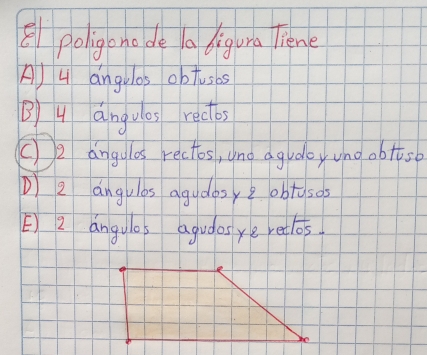 El poligono de la figura Tiene
A) 4 ángulos obtusos
B) 4 ángulos rectos
C) 2 ángulos rectos, uno agudo y uno obtuso
D) 2 ángulos agudos y 2 obtusos
E) 2 ángulos agudos y 2 rectos.